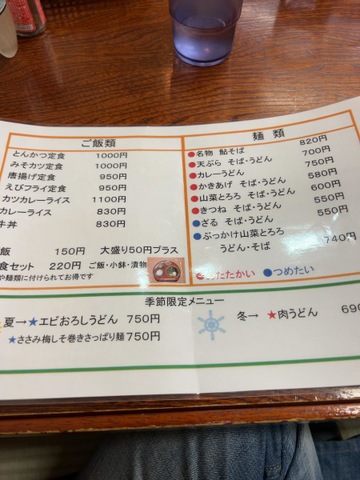 ご飯類
とんかつ定食 1000円
みそカツ定食 1000円
唐揚げ定食 950円
えびフライ定食 950円
カツカレーライス 1100円
カレーライス 830円
牛丼 830円
飯 150円 大盛り50円プラス
食セット 220円 ご飯・小鉢・漬物
や麺類に付けられてお得です
麺類
●名物 鮎そば 820円
●天ぷら そば・うどん 700円
●カレーうどん 750円
●かきあげ そば・うどん 580円
●山菜とろろ そば・うどん 600円
●きつね そば・うどん 550円
●ざる そば・うどん 550円
●ぶっかけ山菜とろろ
うどん・そば 740円
●あたたかい ●つめたい
季節限定メニュー
夏→★エビおろしうどん 750円
★ささみ梅しそ巻きさっぱり麺 750円
冬→ ★肉うどん 690